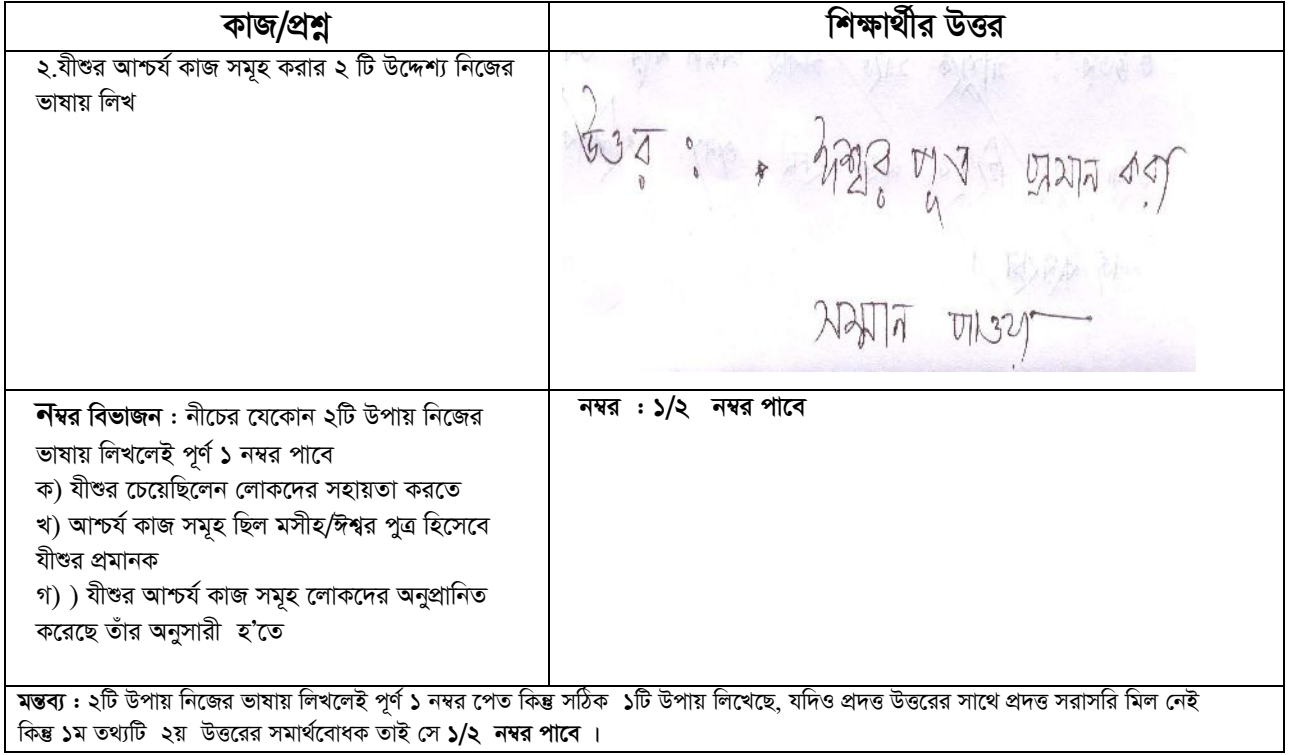 কাজ/প্রশ্ন
শিক্ষার্থীর উত্তর
২.যীশুর আশ্চর্য কাজ সমূহ করার ২ টি উদ্দেশ্য নিজের
ভাষায় লিখ
উত্তর : • ঈশ্বর পুত্র প্রমান করা
সম্মান পাওয়া
নম্বর বিভাজন : নীচের যেকোন ২টি উপায় নিজের
ভাষায় লিখলেই পূর্ণ ১ নম্বর পাবে
ক) যীশুর চেয়েছিলেন লোকদের সহায়তা করতে
খ) আশ্চর্য কাজ সমূহ ছিল মসীহ/ঈশ্বর পুত্র হিসেবে
যীশুর প্রমানক
গ) ) যীশুর আশ্চর্য কাজ সমূহ লোকদের অনুপ্রানিত
করেছে তাঁর অনুসারী হ’তে
নম্বর : ১/২ নম্বর পাবে
মন্তব্য : ২টি উপায় নিজের ভাষায় লিখলেই পূর্ণ ১ নম্বর পেত কিন্তু সঠিক ১টি উপায় লিখেছে, যদিও প্রদত্ত উত্তরের সাথে প্রদত্ত সরাসরি মিল নেই
কিন্তু ১ম তথ্যটি ২য় উত্তরের সমার্থবোধক তাই সে ১/২ নম্বর পাবে ।